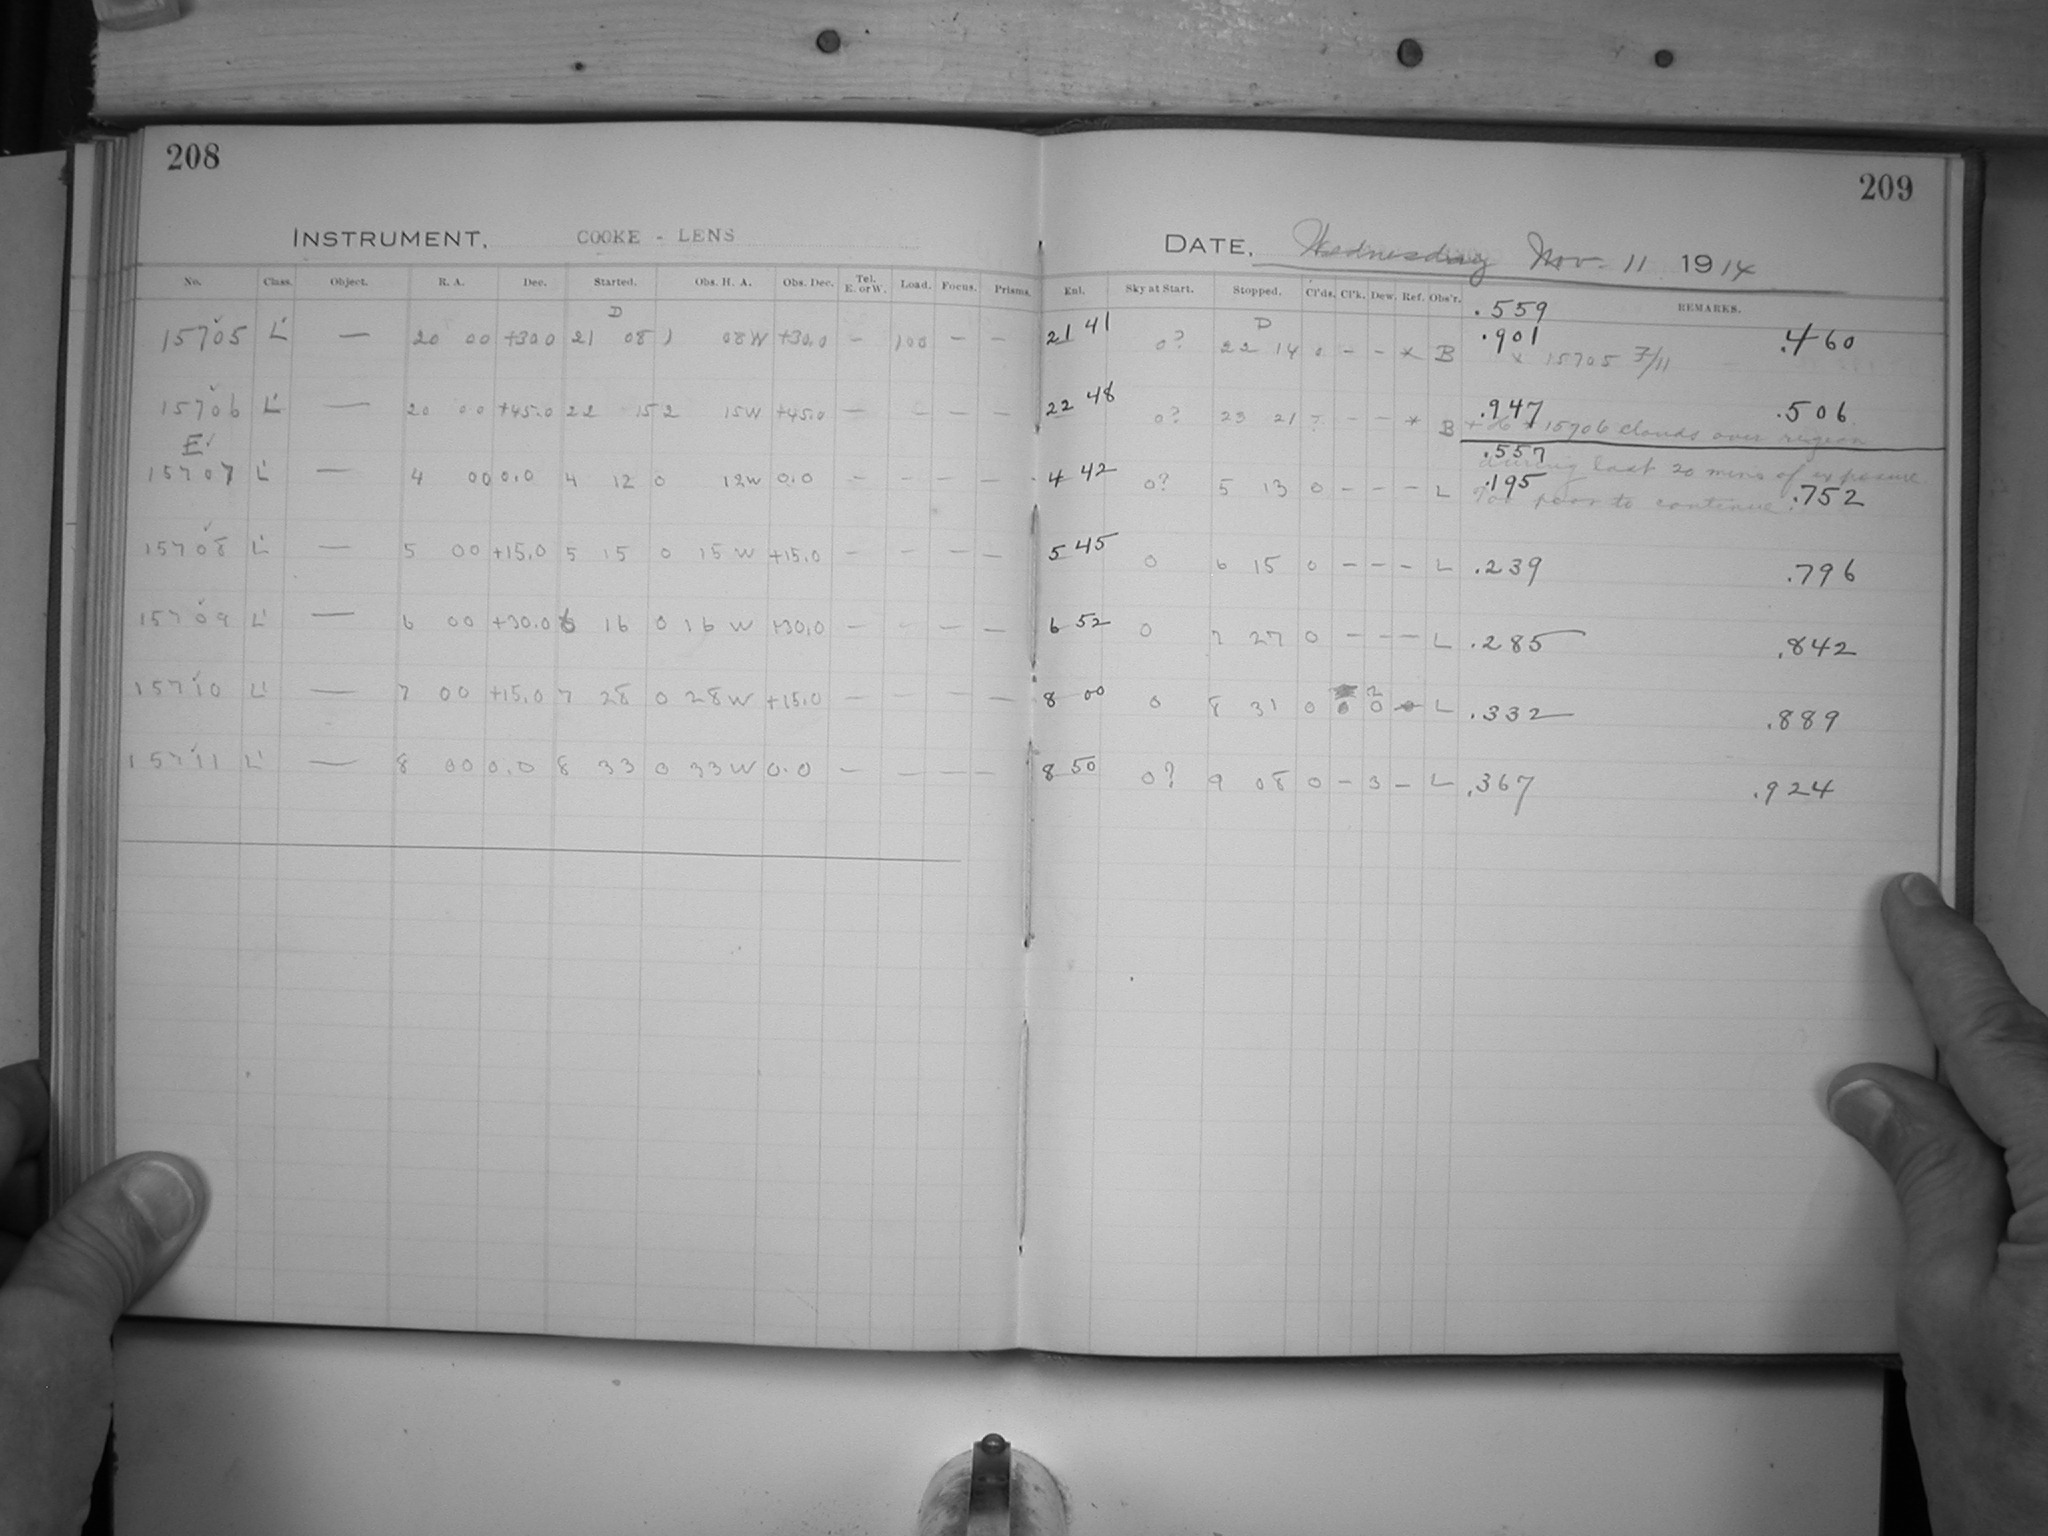 208
209
INSTRUMENT, COOKE - LENS
DATE, Wednesday Nov. 11 1914
No. Class. Object. R. A. Dec. Started. Obs. H. A. Obs. Dec. Tel. E. or W. Load. Focus. Prisms. Enl. Sky at Start. Stopped. Cl'ds. Cl'k. Dew. Ref. Obs'r. REMARKS.
.559
D D
15705 L' — 20 00 +30.0 21 08 1 08W +30.0 — 100 — — 21 41 0? 22 14 0 — — * B .901 .460
* 15705 3/11
15706 L' — 20 00 +45.0 22 15 2 15W +45.0 — — — — 22 48 0? 23 21 ? — — * B .947 .506
15706 clouds over region
E
.557
during last 20 mins of exposure
15707 L' — 4 00 0.0 4 12 0 12W 0.0 — — — — 4 42 0? 5 13 0 — — — L .195 .752
Too poor to continue.
15708 L' — 5 00 +15.0 5 15 0 15W +15.0 — — — — 5 45 0 6 15 0 — — — L .239 .796
15709 L' — 6 00 +30.0 6 16 0 16W +30.0 — — — — 6 52 0 7 27 0 — — — L .285 .842
15710 L' — 7 00 +15.0 7 28 0 28W +15.0 — — — — 8 00 0 8 31 0 0 L .332 .889
15711 L' — 8 00 0.0 8 33 0 33W 0.0 — — — — 8 50 0? 9 08 0 — 3 — L .367 .924